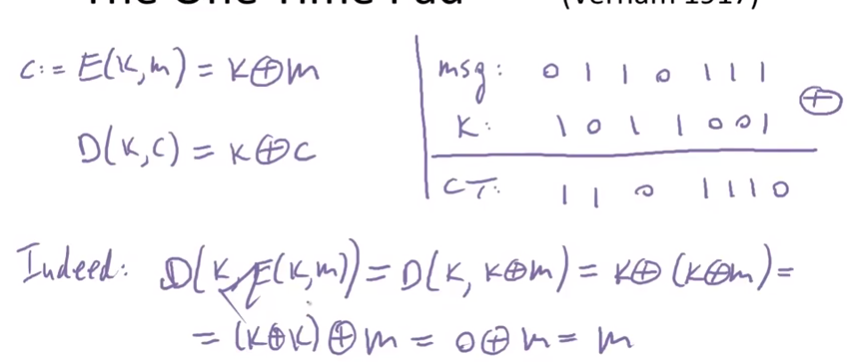 The One Time Pad (Vernam 1917)
C := E(K,m) = K⊕m
D(K,C) = K⊕C
msg: 0 1 1 0 1 1 1
K: 1 0 1 1 0 0 1 ⊕
CT: 1 1 0 1 1 1 0
Indeed: D(K, E(K,m)) = D(K, K⊕m) = K⊕(K⊕m) =
= (K⊕K)⊕m = 0⊕m = m